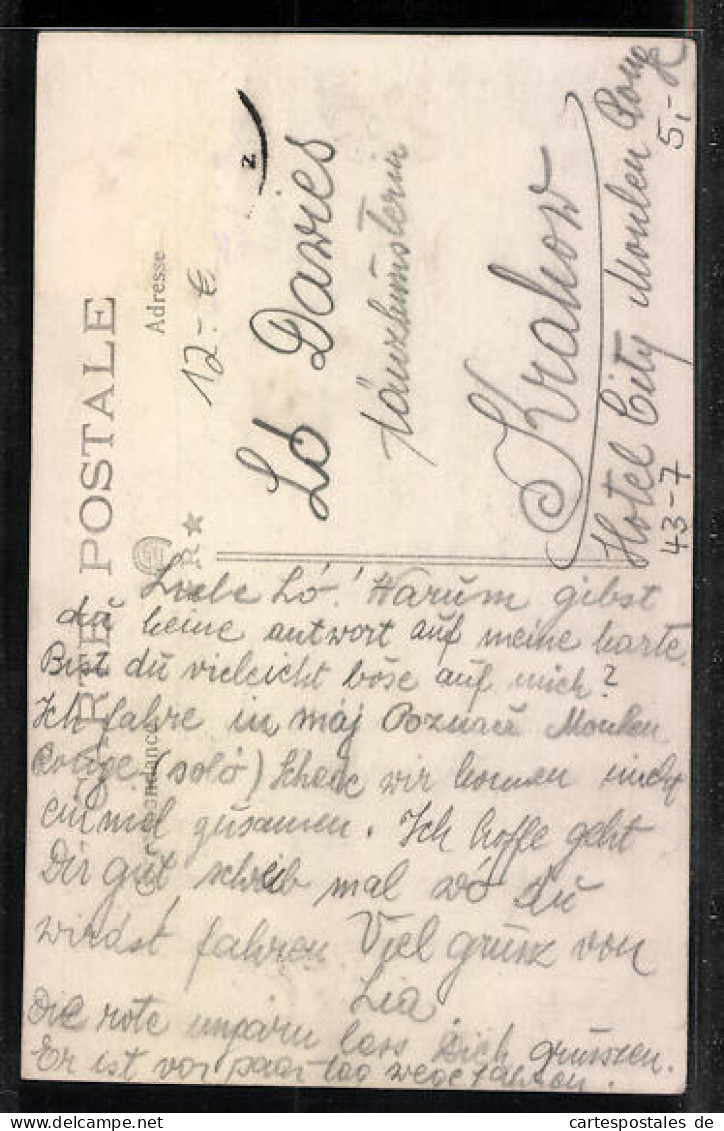 CARTE POSTALE
Adresse
12.- €
Ló Davies
tänzkünsterin
Krakow
Hotel City Moulen Rouge
43-7
5,-
R ★
Liebe Ló! Warum gibst
du keine antwort auf meine karte.
Bist du vieleicht böse auf mich?
Ich fahre in máj Poznań Moulen
Rouge (soló) wir komen nicht
einmal zusamen. Ich hoffe geht
Dir gut schreib mal wó du
wirdst fahren. Viel grüsz von
Lia.
Die rote ungarn lass Dich grüssen.
Er ist vor paar tag wegefahren.
www.cartespostales.de